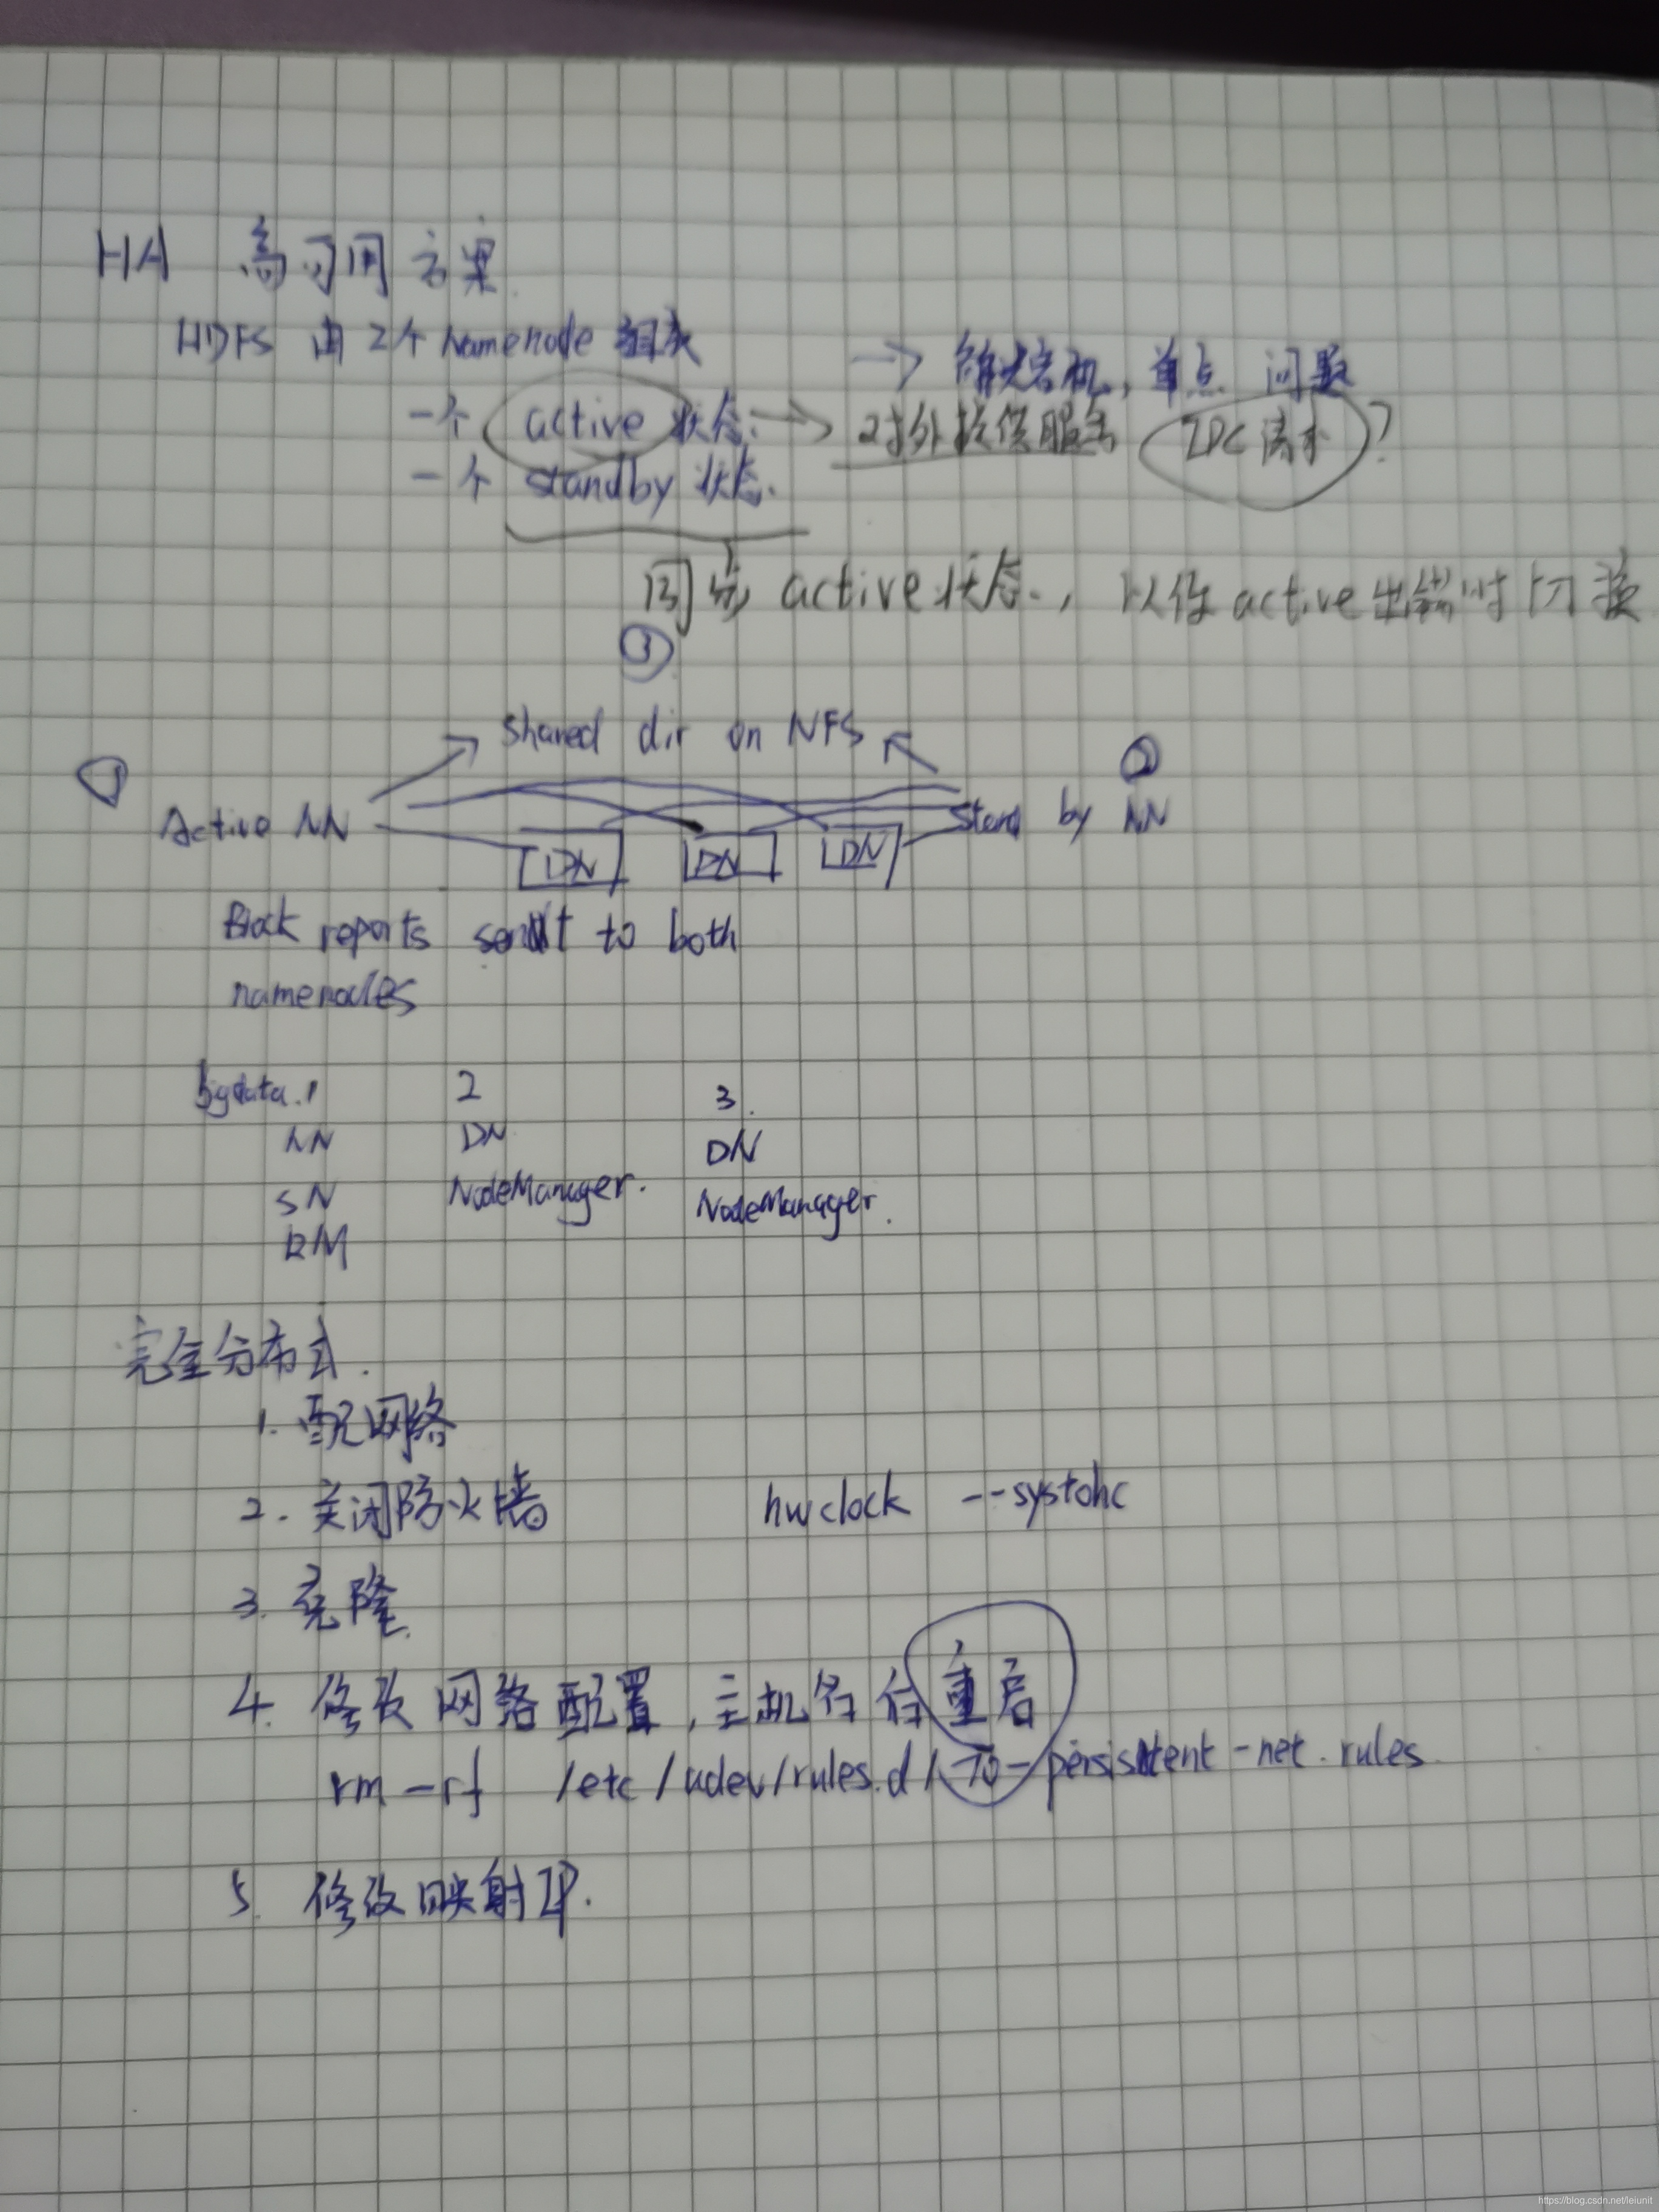 HA 高可用方案
HDFS 由2个Namenode组成
→ 解决宕机,单点 问题
一个 active 状态: → 对外提供服务 ZPC 请求?
一个 standby 状态.
同步 active状态., 以便active出错时切换
③
shared dir on NFS
① ②
Active NN Stand by NN
DN DN DN
Block reports sent to both
namenodes
bigdata.1 2 3.
NN DN DN
SN NodeManager. NodeManager.
RM
完全分布式.
1. 配网络
2. 关闭防火墙 hwclock --systohc
3. 克隆.
4. 修改网络配置,主机名 重启
rm -rf /etc/udev/rules.d/70-persistent-net.rules
5. 修改映射IP.